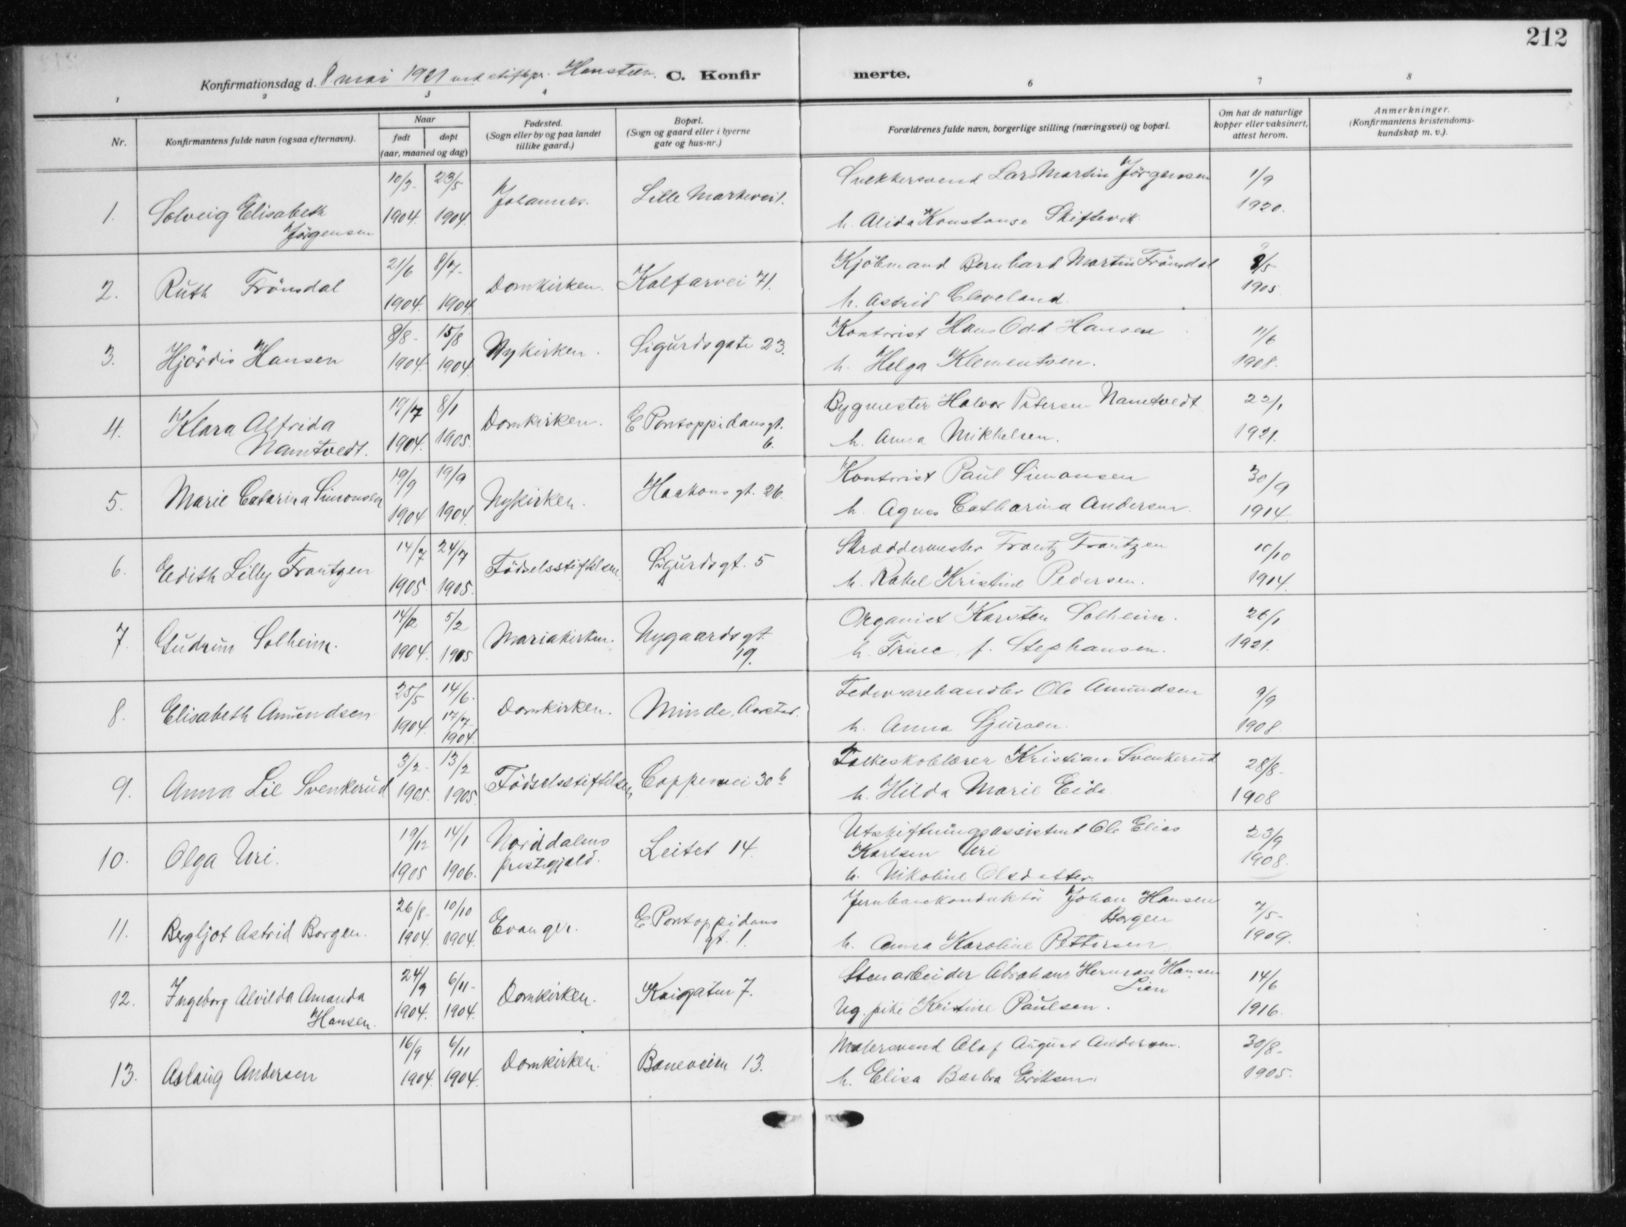 212
Konfirmationsdag d. 8 mai 1921 ved stiftspr. Hansteen. C. Konfirmerte.
1 2 3 4 6 7 8
Nr.
Konfirmantens fulde navn (ogsaa efternavn).
Naar
født
døpt
(aar, maaned og dag)
Fødested.
(Sogn eller by og paa landet
tillike gaard.)
Bopæl.
(Sogn og gaard eller i byerne
gate og hus-nr.)
Forældrenes fulde navn, borgerlige stilling (næringsvei) og bopæl.
Om hat de naturlige
kopper eller vaksinert,
attest herom.
Anmerkninger.
(Konfirmantens kristendoms-
kundskap m. v.).
1. Solveig Elisabeth
Jørgensen
10/3 1904
23/5 1904
Johannes.
Lille Markevei 1.
Lars Martin Jørgensen
h. Alida Konstanse Skiftevik
1/9
1920.
2. Ruth Frönsdal
21/6 1904.
8/7 1904
Domkirken.
Kalfarvei 71.
Kjöbmand Bernhard Martin Frönsdal
h. Astrid Cleveland.
8/5
1905
3. Hjördis Hansen
8/8 1904.
15/8 1904
Nykirken.
Sigurdsgate 23.
Kontorist Hans Odd Hansen
h. Helga Klementsen.
11/6
1908.
4. Klara Alfrida
Namtvedt.
19/7 1904.
8/1 1905
Domkirken.
E Pontoppidansgt.
6
Bygmester Halvor Petersen Namtvedt
h. Anna Mikkelsen.
22/1
1921.
5. Marie Catarina Simonsen
19/9 1904
19/9 1904.
Nykirken.
Haakonsgt. 26.
Kontorist Paul Simonsen
h. Agnes Catharina Andersen.
30/9
1914
6. Edith Lilly Frantzen
14/7 1905
24/7 1905.
Födselsstiftelsen
Sigurdsgt. 5
Skræddermester Frantz Frantzen
h. Rakel Kristine Pedersen.
10/10
1914.
7. Gudrun Solheim.
14/12 1904.
5/2 1905
Mariakirken.
Nygaardsgt.
19.
Organist Karsten Solheim.
h. f. Stephansen.
26/1
1921.
8. Elisabeth Amundsen
25/5 1904
14/6.
17/7 1904.
Domkirken.
Minde, Aarstad.
Ole Amundsen
h. Anna Sjursen.
9/9
1908.
9. Anna Lie Svenkerud
3/2 1905.
13/2 1905
Födselsstiftelsen
30 b
Folkeskolelærer Kristian Svenkerud
h. Hilda Marie Eide
28/8.
1908
10. Olga Uri.
19/12 1905
14/1 1906.
Norddalens
prestegjeld.
Leitet 14.
Utskiftningsassistent Ole Elias
Karlsen Uri
h. Nikoline Olsdatter
23/9
1908.
11. Bergljot Astrid Borgen.
26/8 1904.
10/10 1904.
E Pontoppidans
gt. 1.
Jernbanekonduktör Johan Hansen
Borgen
h. Anna Karoline Pettersen.
7/5
1909.
12. Ingeborg Alvilda Amanda
Hansen.
24/9 1904.
6/11 1904.
Domkirken.
Kaigaten 7.
Stenarbeider Abraham Herman Hansen
Lien
Ug. pike Kristine Paulsen.
14/6
1916.
13. Aslaug Andersen
16/9 1904.
6/11 1904.
Domkirken.
Baneveien 13.
Malersvend Olaf August Andersen.
h. Elisa Barbra Eriksen.
30/8
1905.